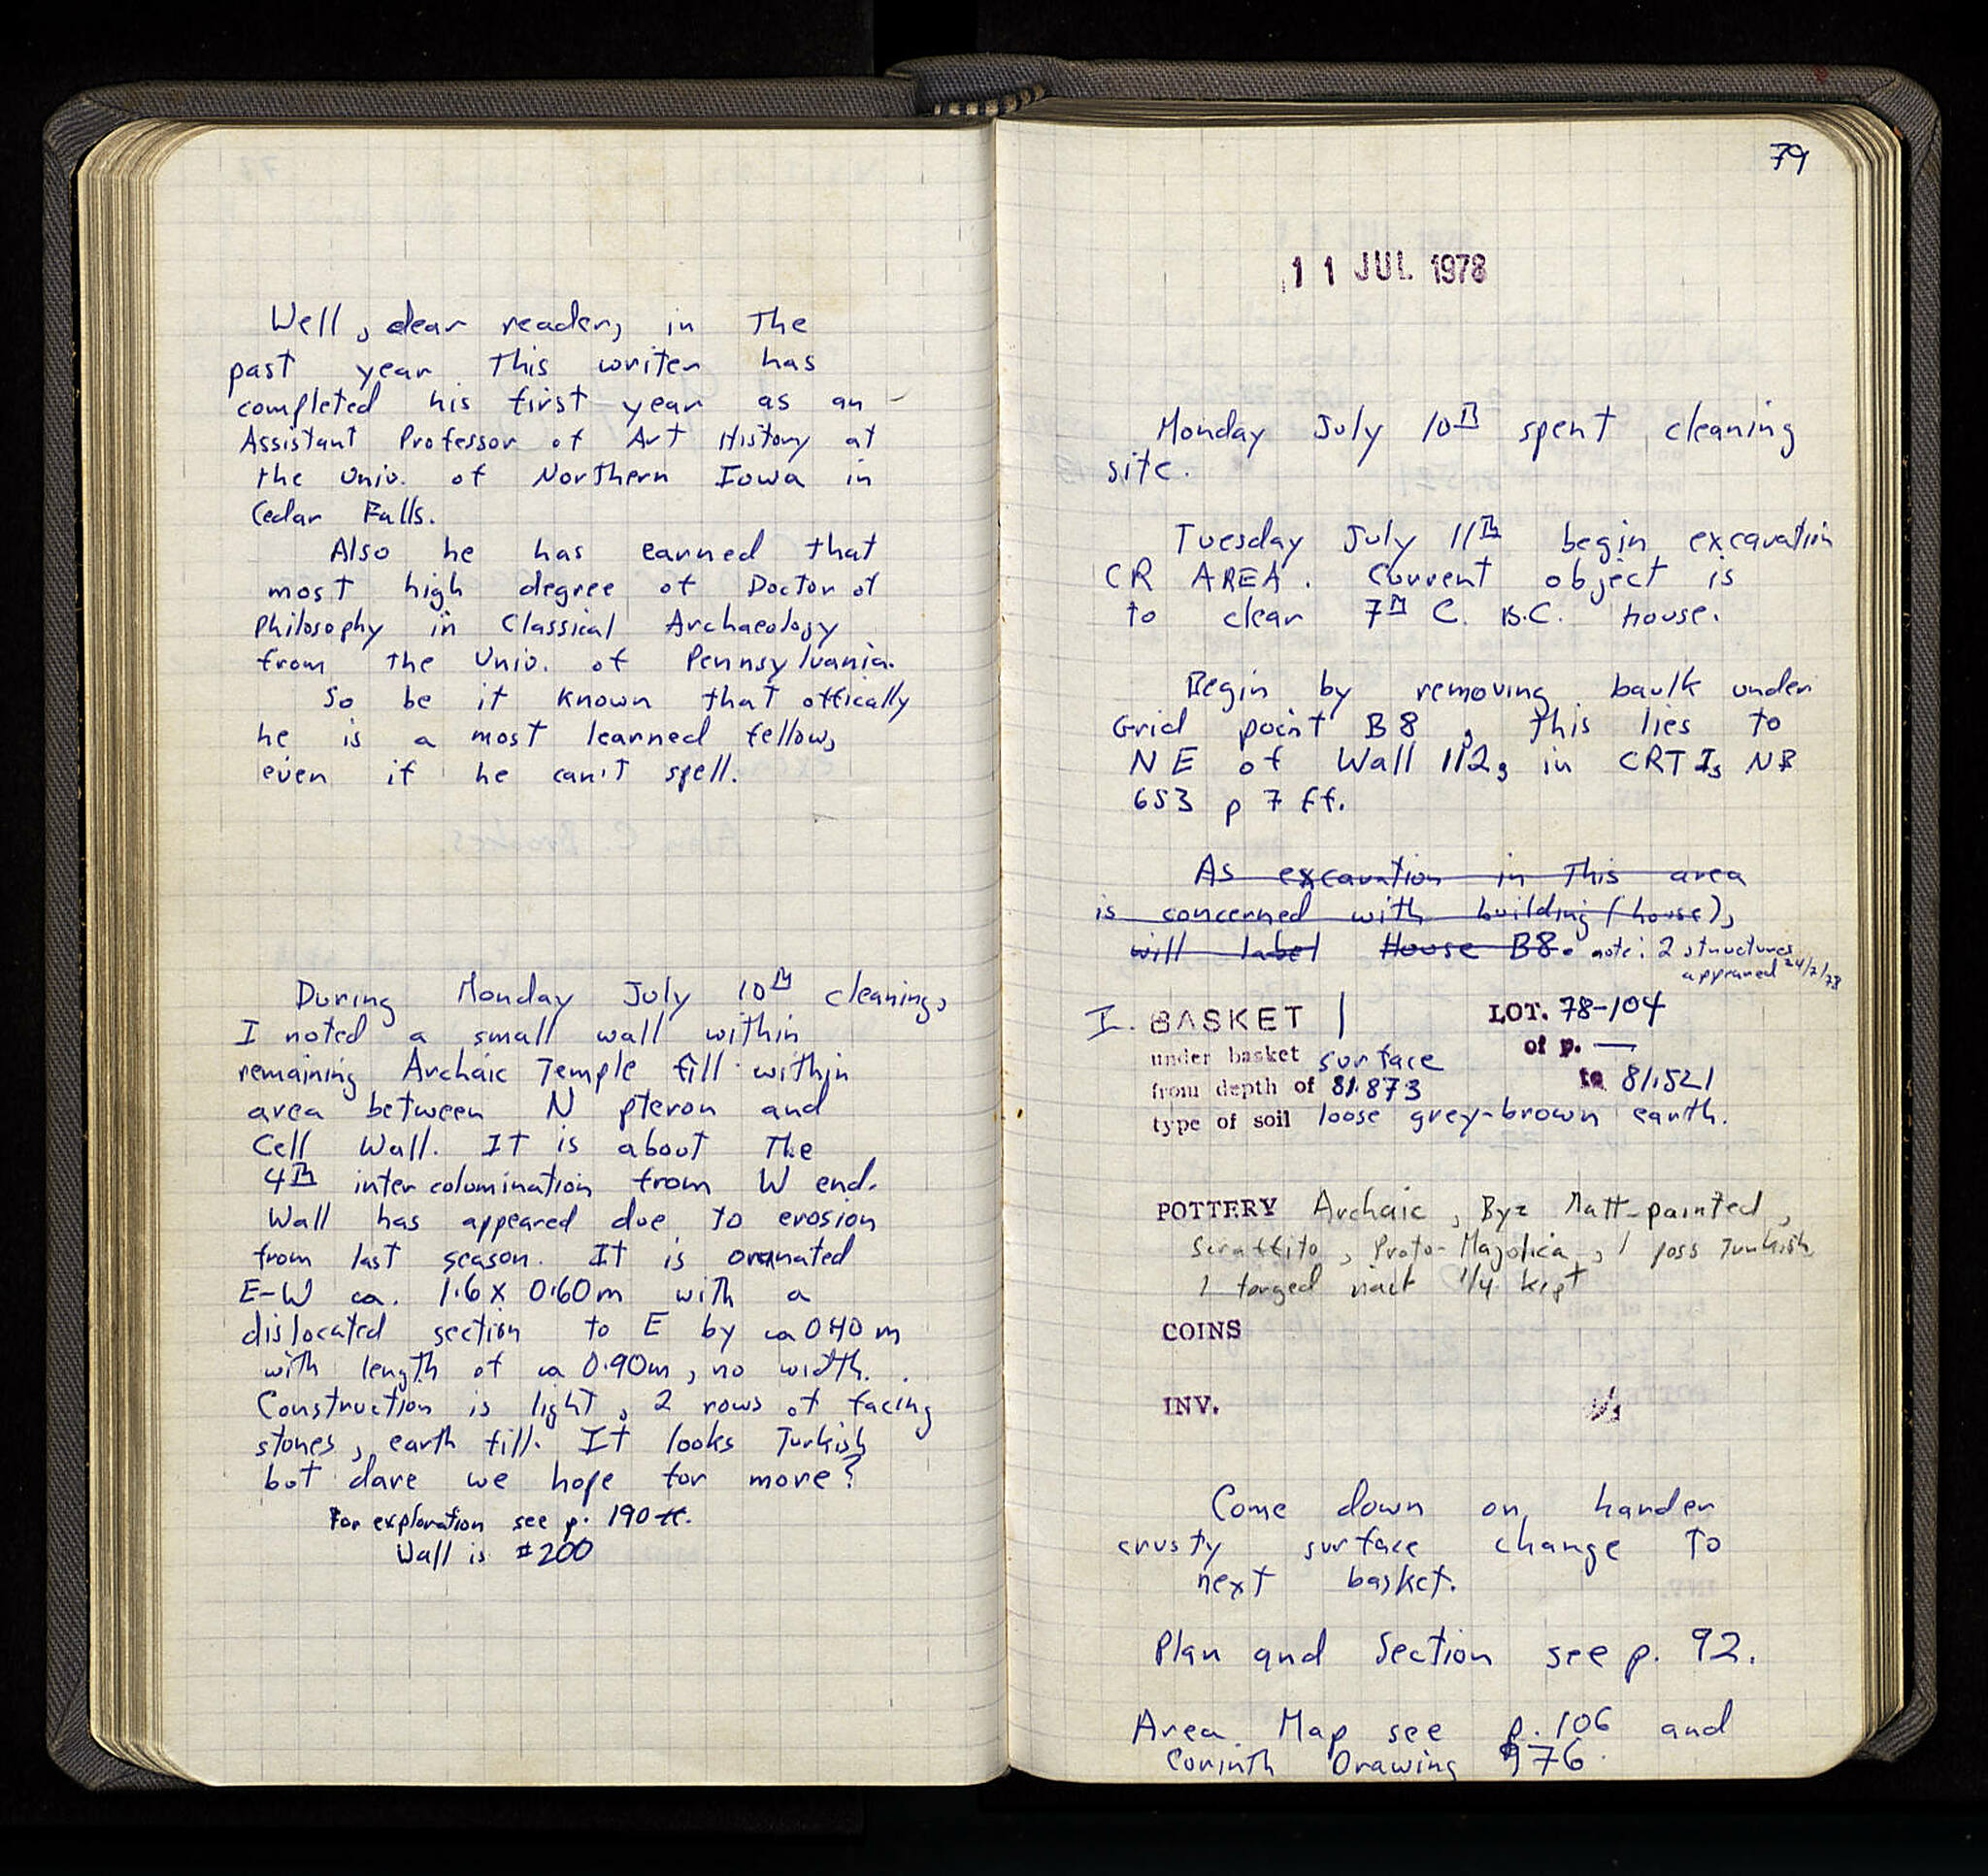 Well, dear reader, in the
past year this writer has
completed his first year as an
Assistant Professor of Art History at
the Univ. of Northern Iowa in
Cedar Falls.
Also he has earned that
most high degree of Doctor of
Philosophy in Classical Archaeology
from the Univ. of Pennsylvania.
So be it known that offically
he is a most learned fellow,
even if he can't spell.
During Monday July 10th cleaning,
I noted a small wall within
remaining Archaic Temple fill within
area between N pteron and
Cell Wall. It is about the
4th intercolumination from W end.
Wall has appeared due to erosion
from last season. It is
E-W ca. 1.6 x 0.60m with a
dislocated section to E by ca 0.40 m
with length of ca 0.90m, no width.
Construction is light, 2 rows of facing
stones, earth fill. It looks Turkish
but dare we hope for more?
For exploration see p. 190 ff.
Wall is #200
79
11 JUL 1978
Monday July 10th spent cleaning
site.
Tuesday July 11th begin excavation
CR AREA. Current object is
to clear 7th C. B.C. house.
Begin by removing baulk under
Grid point B8, this lies to
NE of Wall 112, in CRT I, NB
653 p 7 ff.
As excavation in this area
is concerned with building (house),
will label House B8. note: 2 structures
appeared 24/7/78
I. BASKET 1 LOT. 78-104
under basket surface of p. —
from depth of 81.873 to 81.521
type of soil loose grey-brown earth.
POTTERY Archaic, Byz Matt-painted,
Sgraffito, Proto-Majolica, 1 poss Turkish
1 forged nail 1/4 kept
COINS
INV.
Come down on harder
crusty surface change to
next basket.
Plan and Section see p. 92.
Area Map see p. 106 and
Corinth Drawing 976.